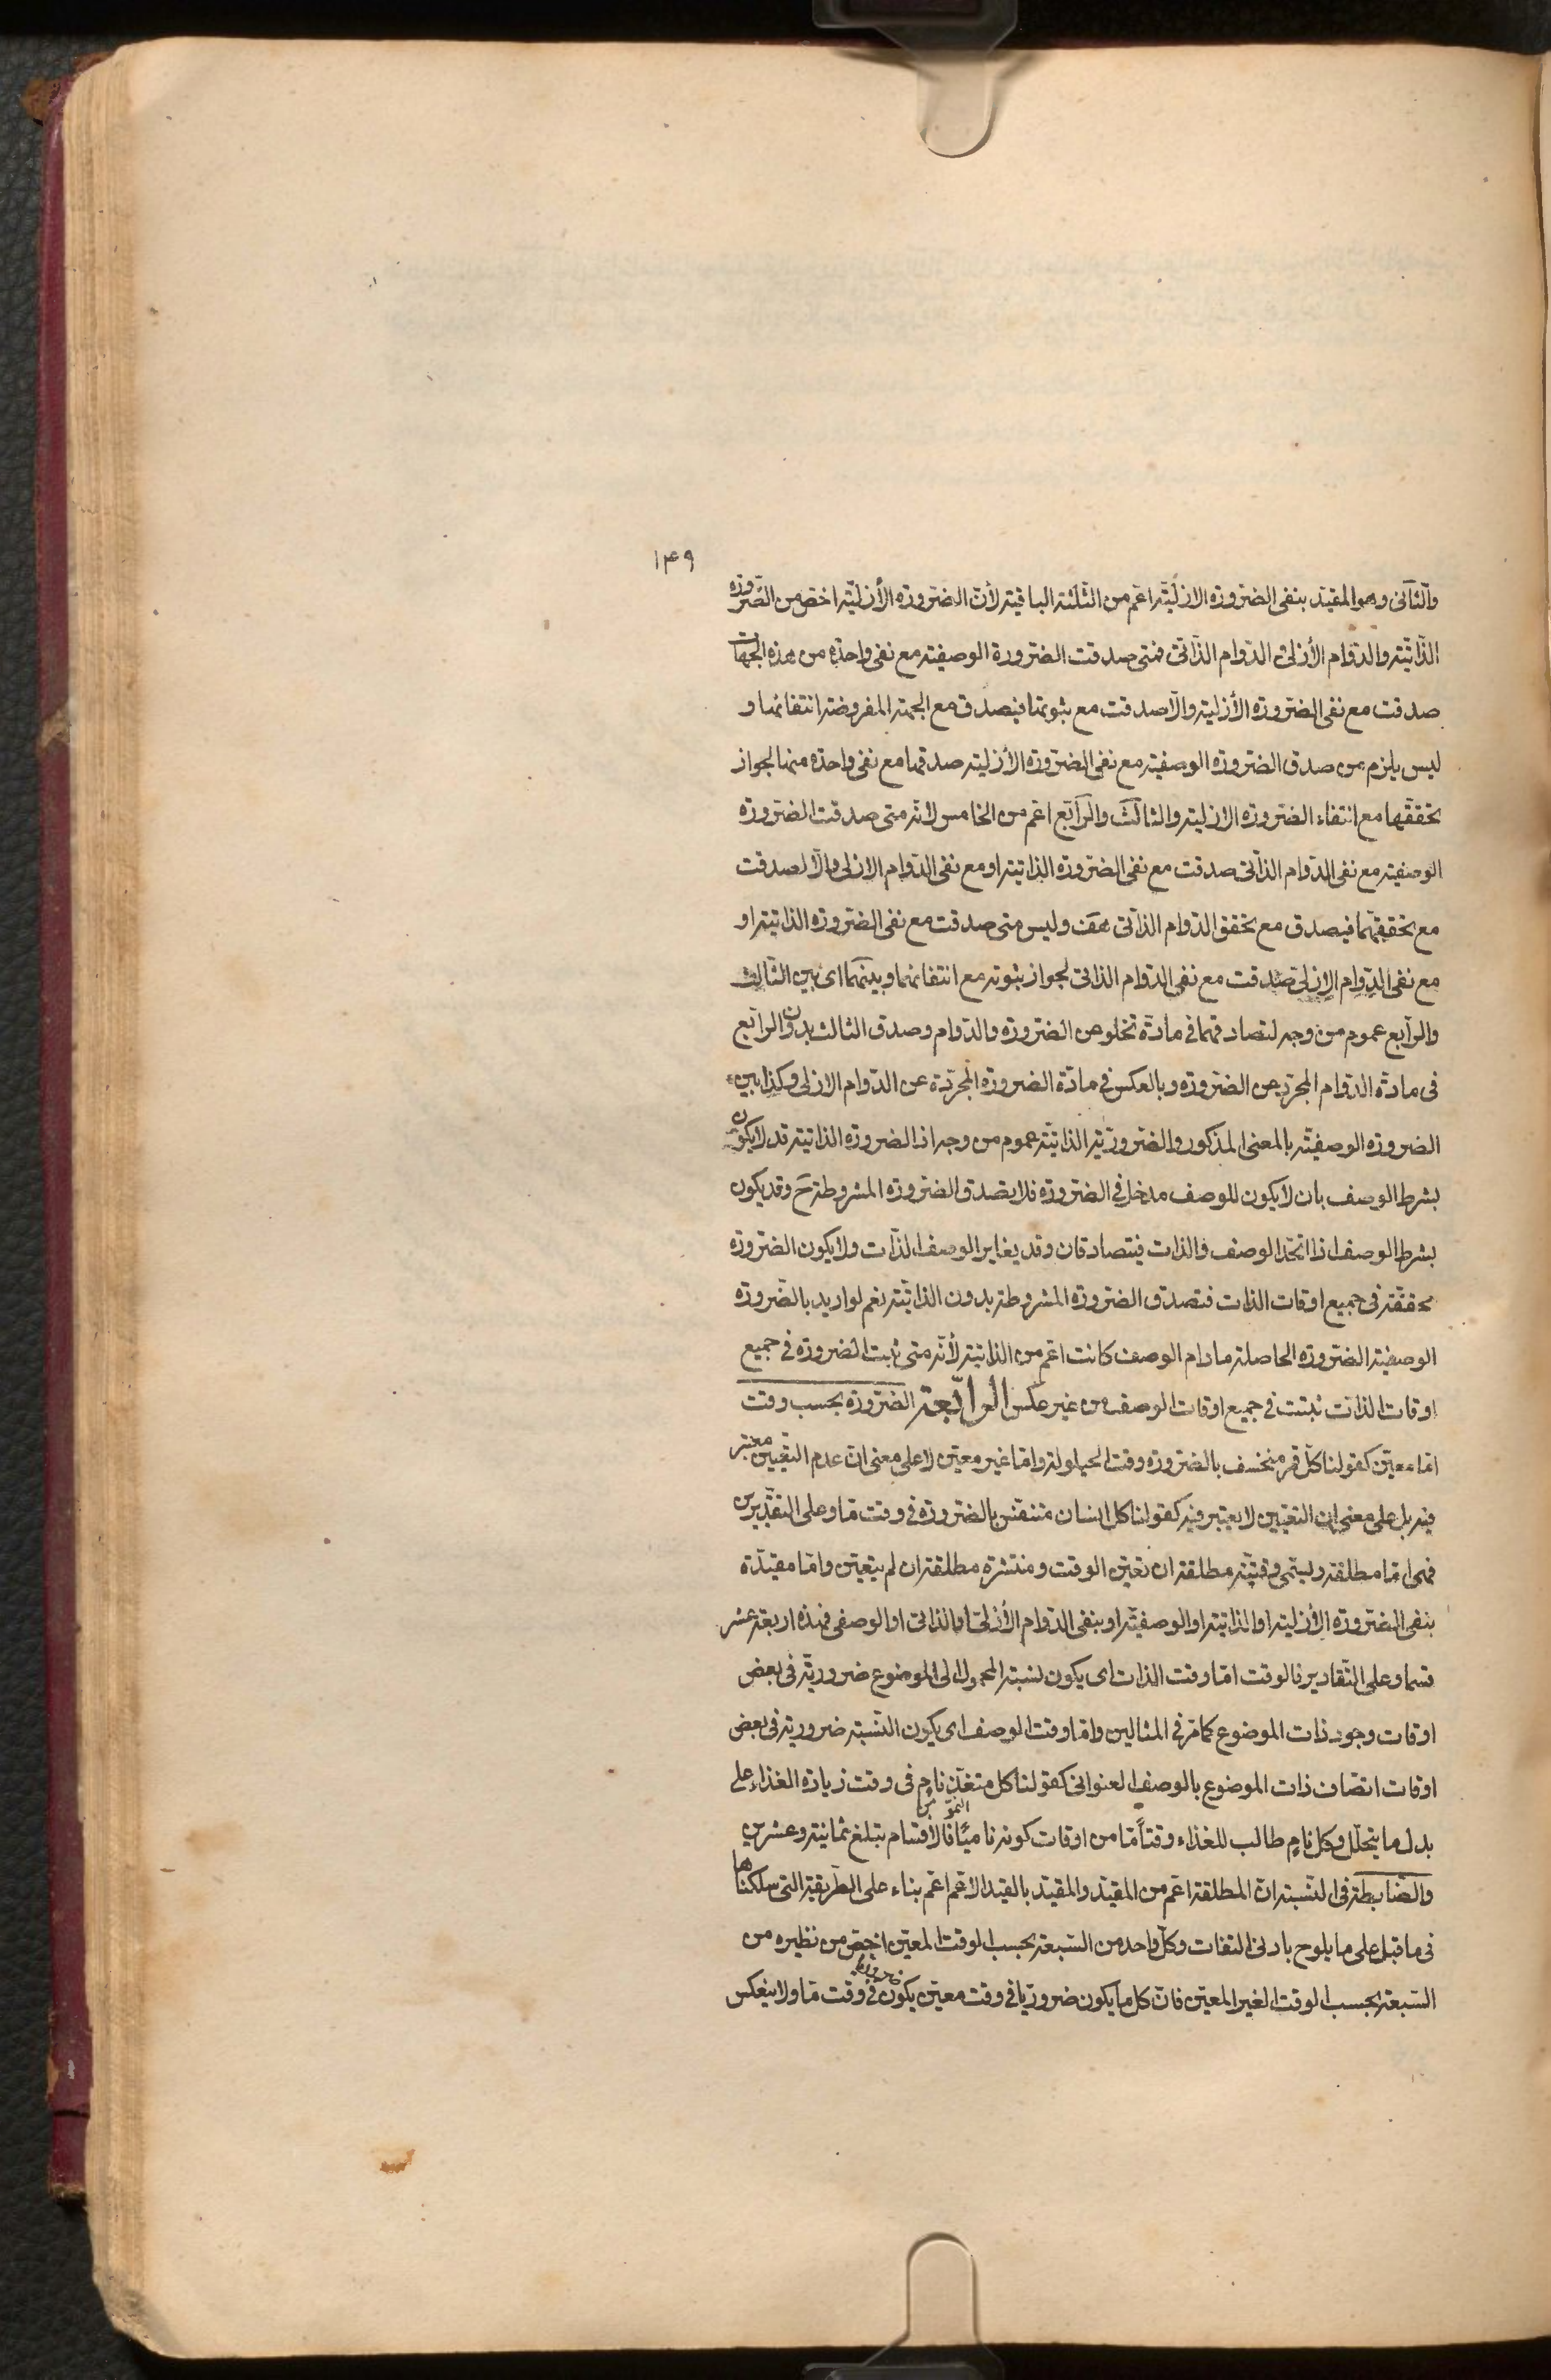 ۱۴۹
والثانى وهو المقيد بنفى الضرورة الازلية اعم من الثلثة الباقية لأن الضرورة الأزلية اخص من الضرورة
الذاتية والدوام الأزلى والدوام الذاتى فمتى صدقت الضرورة الوصفية مع نفى واحدة من هذه الجهات
صدقت مع نفى الضرورة الأزلية والا صدقت مع ثبوتها فيصدق مع الجهة المفروضة انتفائها و
ليس يلزم من صدق الضرورة الوصفية مع نفى الضرورة الأزلية صدقها مع نفى واحدة منها لجواز
تحققها مع انتفاء الضرورة الازلية والثالث والرابع اعم من الخامس لانه متى صدقت الضرورة
الوصفية مع نفى الدوام الذاتى صدقت مع نفى الضرورة الذاتية او مع نفى الدوام الازلى والا لصدقت
مع تحققهما فيصدق مع تحقق الدوام الذاتى هف وليس متى صدقت مع نفى الضرورة الذاتية او
مع نفى الدوام الازلى صدقت مع نفى الدوام الذاتى لجواز ثبوته مع انتفائهما وبينهما اى بين الثالث
والرابع عموم من وجه لتصادقهما فى مادة تخلو عن الضرورة والدوام وصدق الثالث بدون الرابع
فى مادة الدوام المجرد عن الضرورة وبالعكس فى مادة الضرورة المجردة عن الدوام الازلى وكذا بين
الضرورة الوصفية بالمعنى المذكور والضرورية الذاتية عموم من وجه اذ الضرورة الذاتية قد لا يكون
بشرط الوصف بان لا يكون للوصف مدخل فى الضرورة فلا يصدق الضرورة المشروطة ح وقد يكون
بشرط الوصف اذا اتحد الوصف والذات فيتصادقان وقد يغاير الوصف الذات ولا يكون الضرورة
محققة فى جميع اوقات الذات فتصدق الضرورة المشروطة بدون الذاتية نعم لو اريد بالضرورة
الوصفية الضرورة الحاصلة مادام الوصف كانت اعم من الذاتية لأنه متى ثبت الضرورة فى جميع
اوقات الذات ثبتت فى جميع اوقات الوصف من غير عكس الرابعة الضرورة بحسب وقت
اما معين كقولنا كل قمر منخسف بالضرورة وقت الحيلولة واما غير معين لا على معنى ان عدم التعيين معتبر
فيه بل على معنى ان التعيين لا يعتبر فيه كقولنا كل انسان متنفس بالضرورة فى وقت ما وعلى التقديرين
فهى اما مطلقة وليسمى وقتية مطلقة ان تعين الوقت ومنتشرة مطلقة ان لم يتعين واما مقيدة
بنفى الضرورة الأزلية او الذاتية او الوصفية او بنفى الدوام الأزلى او الذاتى او الوصفى فهذه اربعة عشر
قسما وعلى التقادير فالوقت اما وقت الذات اى يكون لنسبة المحمول الى الموضوع ضرورية فى بعض
اوقات وجود ذات الموضوع كما مر فى المثالين واما وقت الوصف اى يكون النسبة ضرورية فى بعض
اوقات اتصاف ذات الموضوع بالوصف العنوانى كقولنا كل متغذ نام فى وقت زيادة الغذاء على
بدل ما يتحلل وكل نام طالب للغذاء وقتاً ما من اوقات كونه ناميًا فالأقسام تبلغ ثمانية وعشرين
والضابطة فى النسبة ان المطلقة اعم من المقيد والمقيد بالقيد الاعم اعم بناء على الطريقة التى سلكناها
فى ما قبل على ما يلوح بادنى التفات وكل واحد من السبعة بحسب الوقت المعين اخص من نظيره من
السبعة بحسب الوقت الغير المعين فان كل ما يكون ضروريا فى وقت معين يكون ضروريا فى وقت ما ولا ينعكس